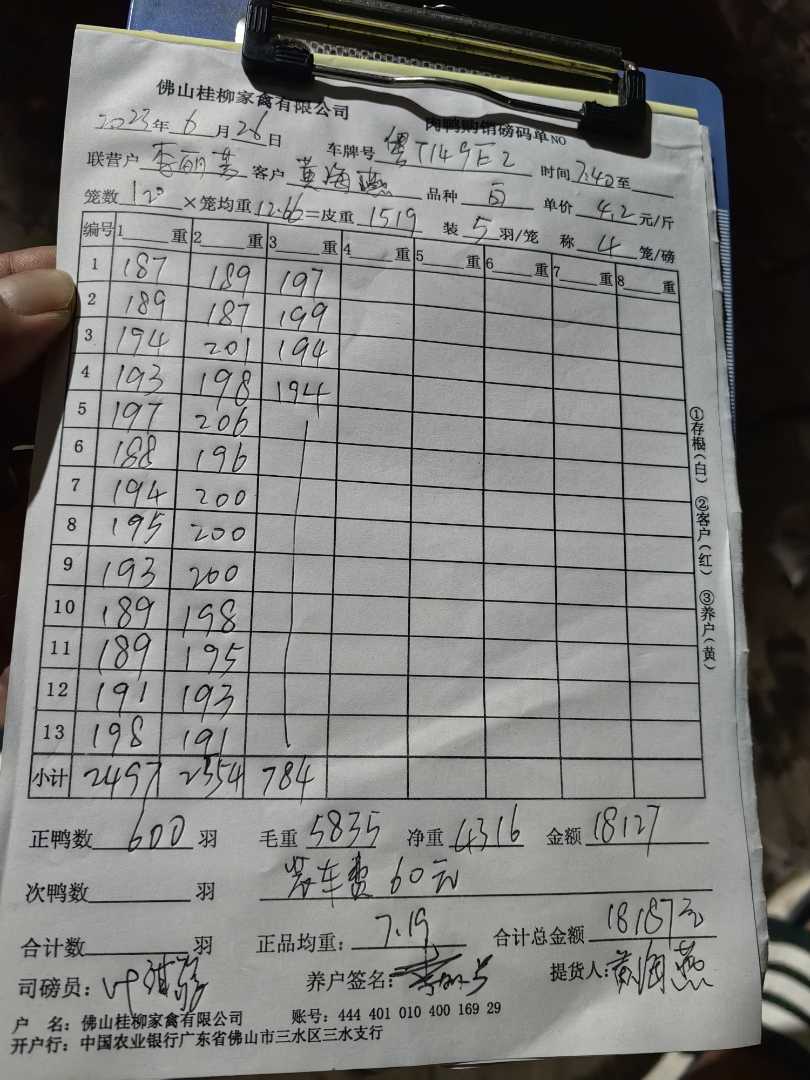 佛山桂柳家禽有限公司
肉鸭购销磅码单NO
2023年6月26日 车牌号 粤T149E2 时间7:40至
联营户 李丽芳 客户 黄海燕 品种 白 单价 4.2 元/斤
笼数 120 ×笼均重12.66=皮重 1519 装 5 羽/笼 称 4 笼/磅
编号 1 重 2 重 3 重 4 重 5 重 6 重 7 重 8 重
1 187 189 197
2 189 187 199
3 194 201 194
4 193 198 194
5 197 206
6 188 196
7 194 200
8 195 200
9 193 200
10 189 198
11 189 195
12 191 193
13 198 191
小计 2497 2554 784
①存根(白) ②客户(红) ③养户(黄)
正鸭数 600 羽 毛重 5835 净重 4316 金额 18127
次鸭数 羽 装车费 60元
合计数 羽 正品均重: 7.19 合计总金额 18187元
司磅员: 养户签名: 提货人: 黄海燕
户 名: 佛山桂柳家禽有限公司 账号: 444 401 010 400 169 29
开户行: 中国农业银行广东省佛山市三水区三水支行